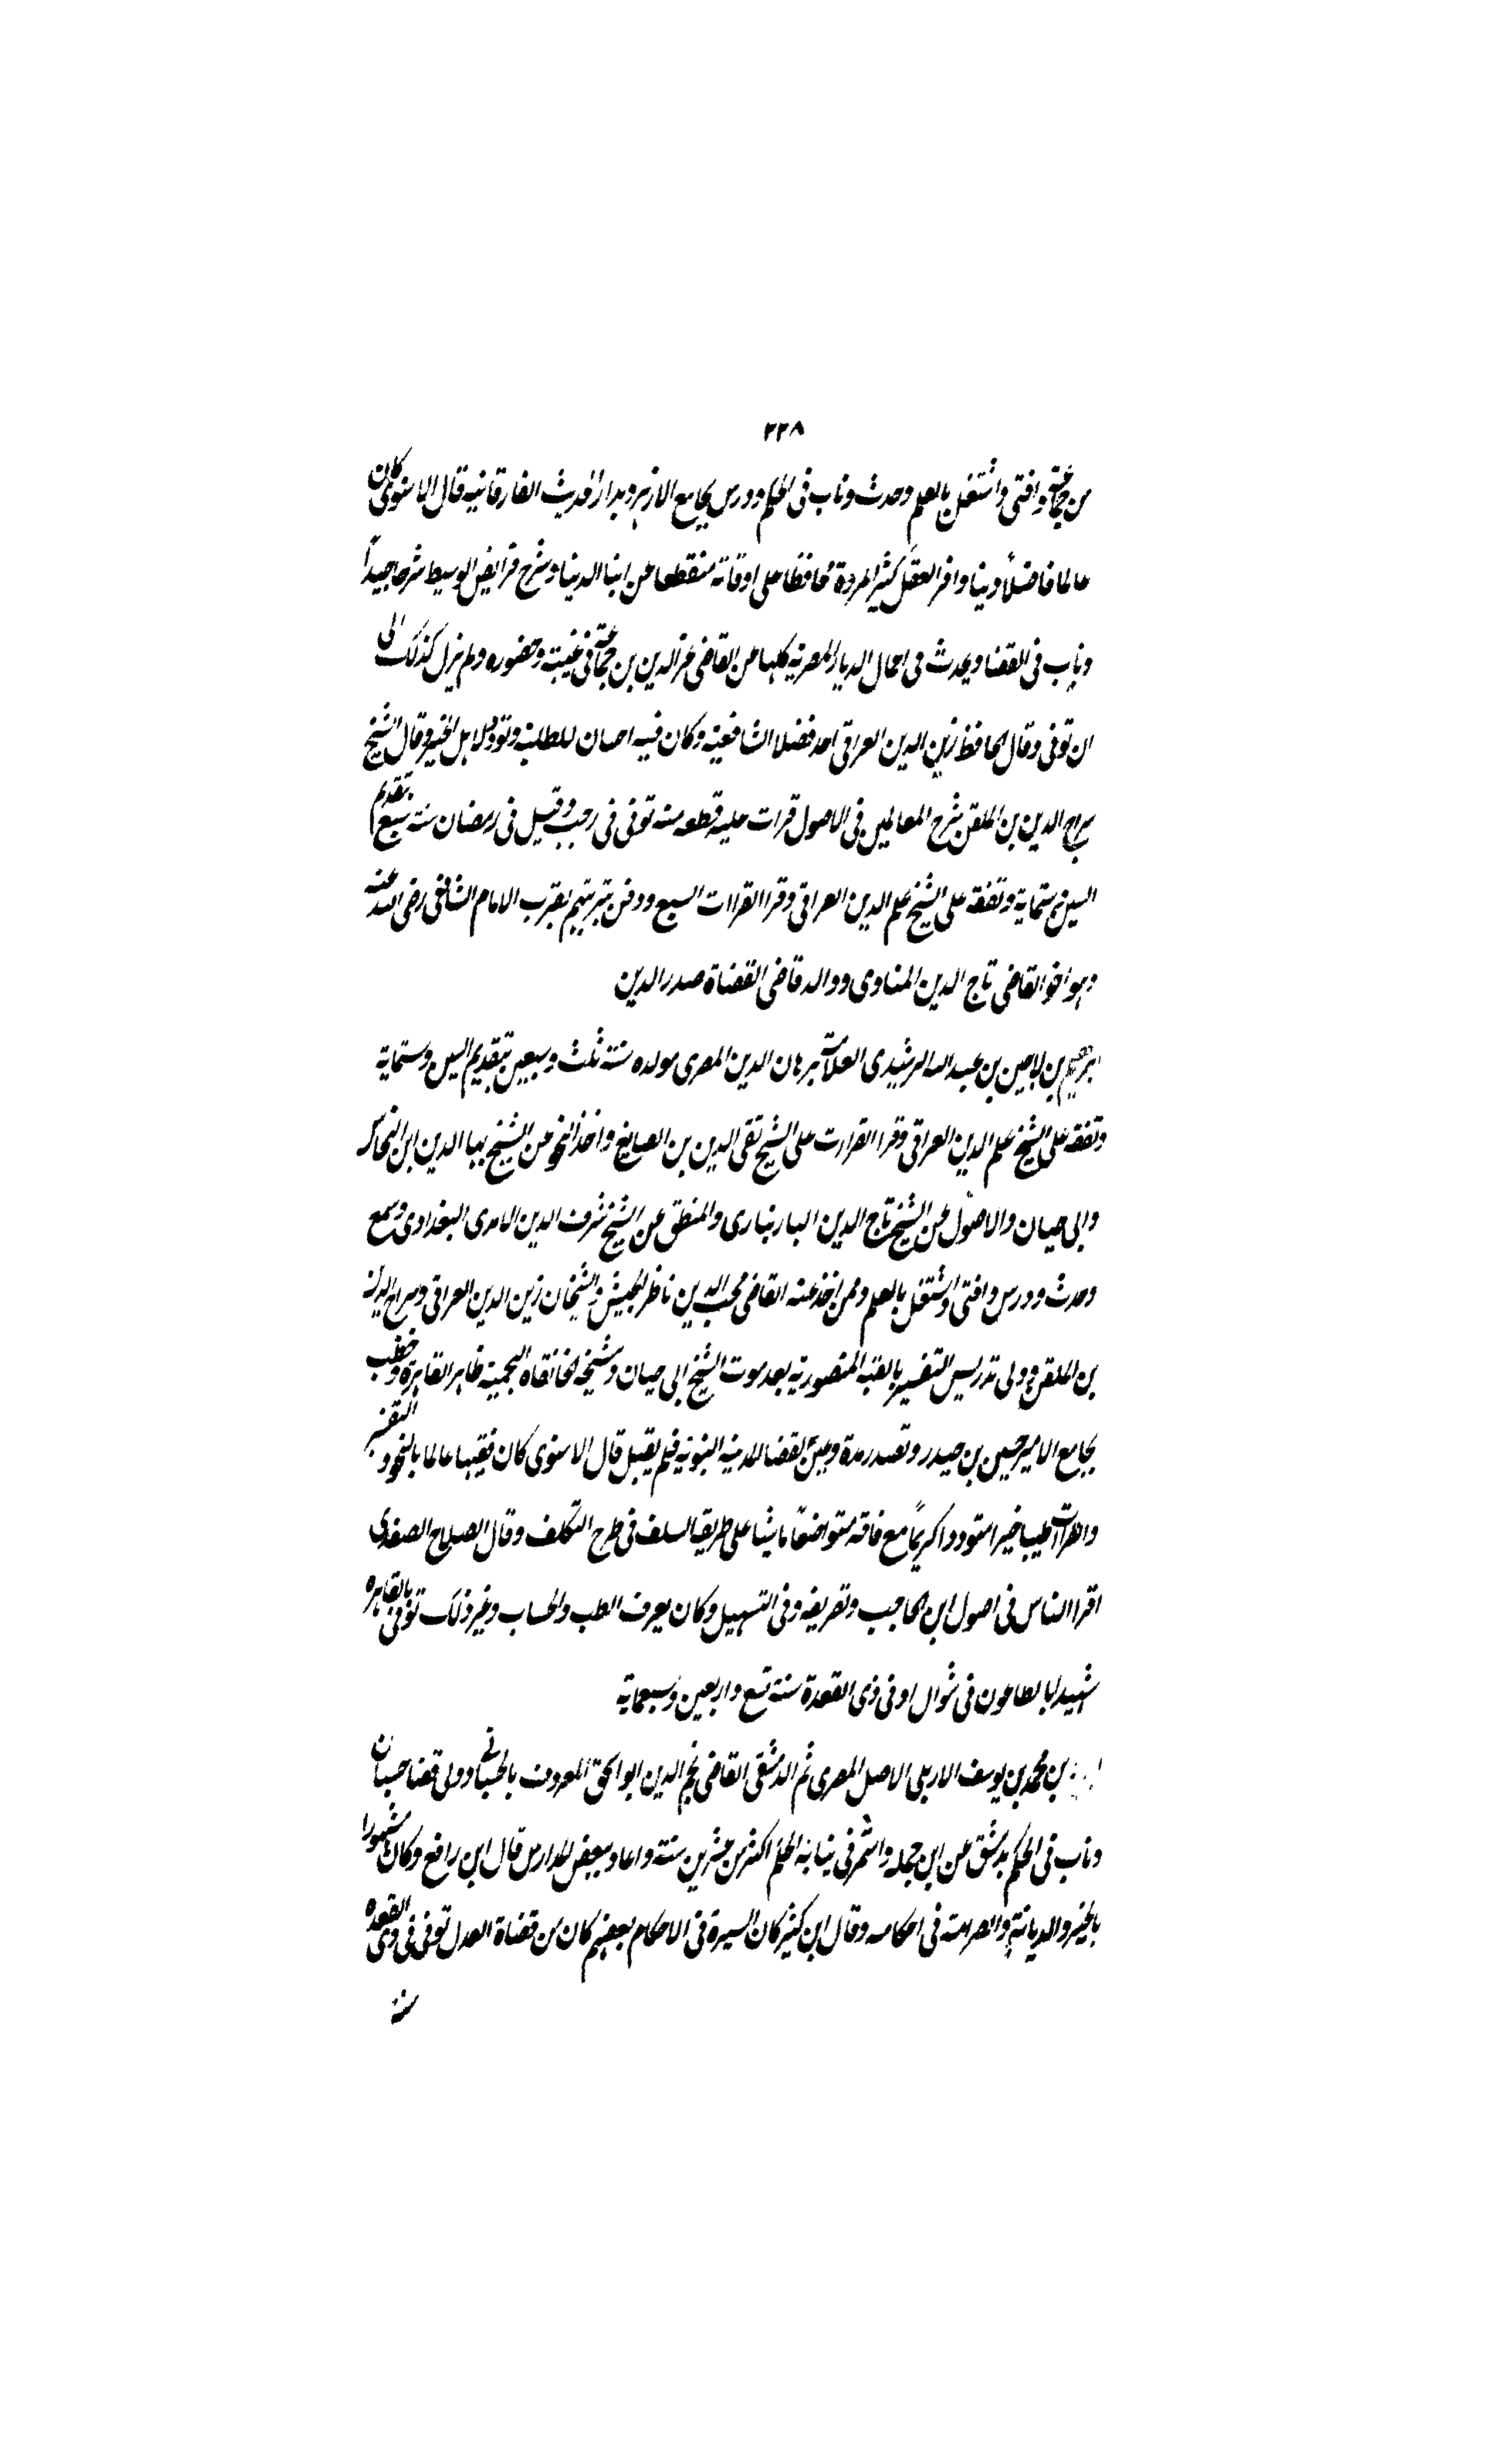 ٢٢٨
من جماعة وافتى واشتغل بالعلم وحدث وناب فى الحكم ودرس بجامع الازهر وبدار الحديث الفارقانيه قال الاسنوى كان
عالما فاضلاً دينا وافر العقل كثير المروة محافظا على اوقاته منقطعا عن ابنا الدنيا وشرح فرايض الوسيط شرحا جيداً
وناب فى القضا ويحدث فى اعمال الديار المصريه كلها عن القاضى عز الدين بن جماعة فى غيبته وحضوره ولم يزل كذلك الى
ان توفى وقال الحافظ زين الدين العراقى احد فضلا الشافعية وكان فيه احسان للطلبة وتودد لاهل الخير وقال الشيخ
سراج الدين بن الملقن شرح المعالمين فى الاصول قرات عليه قطعه منه توفى فى رجب وقيل فى رمضان سنة سبع (بتقديم
السين ستماية وتفقه على الشيخ علم الدين العراقى وقرا القراات السبع ودفن بتربتهم بقرب الامام الشافعى رضى الله عنه
وهو اخو القاضى تاج الدين المناوى ووالد قاضى القضاة صدر الدين
ابرهيم بن لاجين بن عبد الله الرشيدى العلامة برهان الدين المصرى مولده سنة ثلث وسبعين بتقديم السين وستماية
وتفقه على الشيخ علم الدين العراقى وقرا القرات على الشيخ تقى الدين بن الصايغ واخذ النحو عن الشيخ بها الدين ابن النحاس
وابى حيان والاصول عن الشيخ تاج الدين البارنبارى والمنطق عن الشيخ شرف الدين الامدى البغدادى وسمع
وحدث ودرس وافتى واشتغل بالعلم وممن اخذ عنه القاضى محب الدين ناظر الجيش والشيخان زين الدين العراقى وسراج الدين
بن الملقن وولى تدريس التفسير بالقبة المنصوريه بعد موت الشيخ ابى حيان ومشيخة الخانقاه النجميه ظاهر القاهرة وخطب
بجامع الامير حسين بن حيدر وتصدر مدة وعين لقضا المدينه النبويه فلم يقبل قال الاسنوى كان فقيها عالما بالنحو والتفسير
والقراات طيبا خيرا متوددا كريمًا مع فاقه متواضعًا ماشيا على طريقة السلف فى طرح التكلف وقال الصلاح الصفدى
اقرا الناس فى اصول ابن الحاجب وتصريفه وفى التسهيل وكان يعرف الطب والحساب وغير ذلك توفى بالقاهره
شهيدا بالطاعون فى شوال او فى ذى القعدة سنة تسع واربعين وسبعماية
بن محمد بن يوسف الاربلى الاصل المصرى ثم الدمشقى القاضى نجم الدين ابو اسحق المعروف بالحسبانى ولى قضا حسبان
وناب فى الحكم بدمشق عن ابن جمله واستمر فى نيابة الحكم اكثر من عشرين سنة واعاد ببعض المدارس قال ابن رافع وكان مشهورا
بالخير والديانة والصرامة فى احكامه وقال ابن كثير كان السيرة فى الاحكام بعضهم كان من قضاة العدل توفى فى ذى القعده
سنة